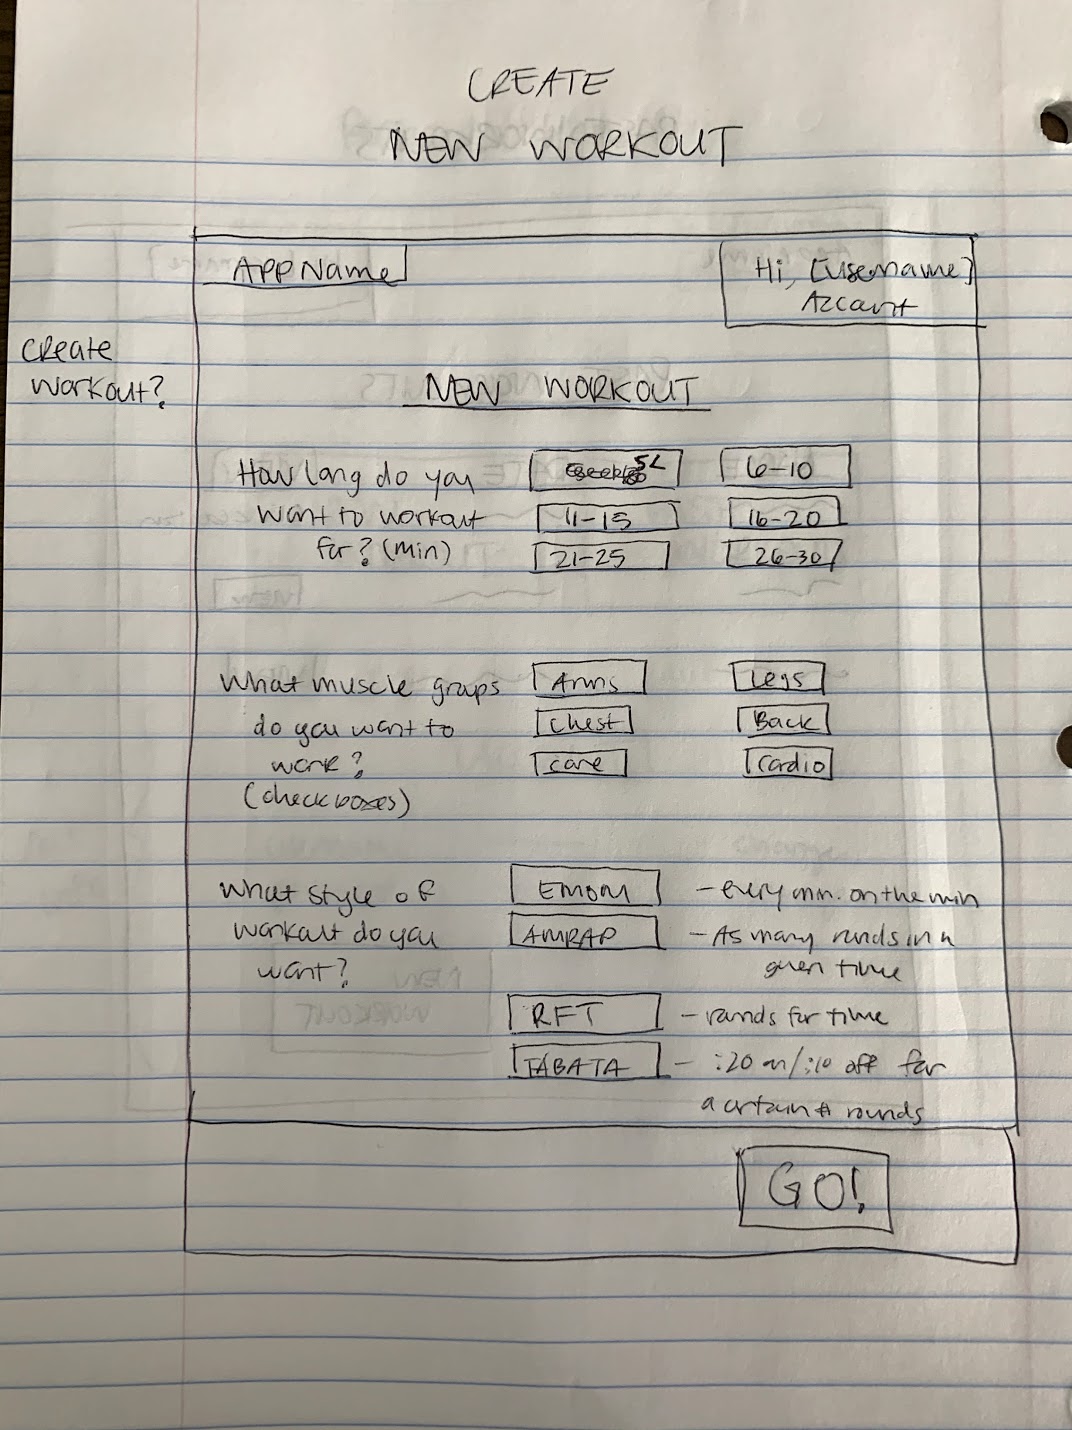 CREATE
NEW WORKOUT
APP Name
Hi, [username]
Account
Create
workout?
NEW WORKOUT
How long do you
want to workout
for? (min)
5<
6-10
11-15
16-20
21-25
26-30
What muscle groups
do you want to
work?
(checkboxes)
Arms
Legs
Chest
Back
core
Cardio
What style of
workout do you
want?
EMOM
- every min. on the min
AMRAP
- As many rounds in a
given time
RFT
- rounds for time
TABATA
- :20 on/:10 off for
a certain # rounds
GO!